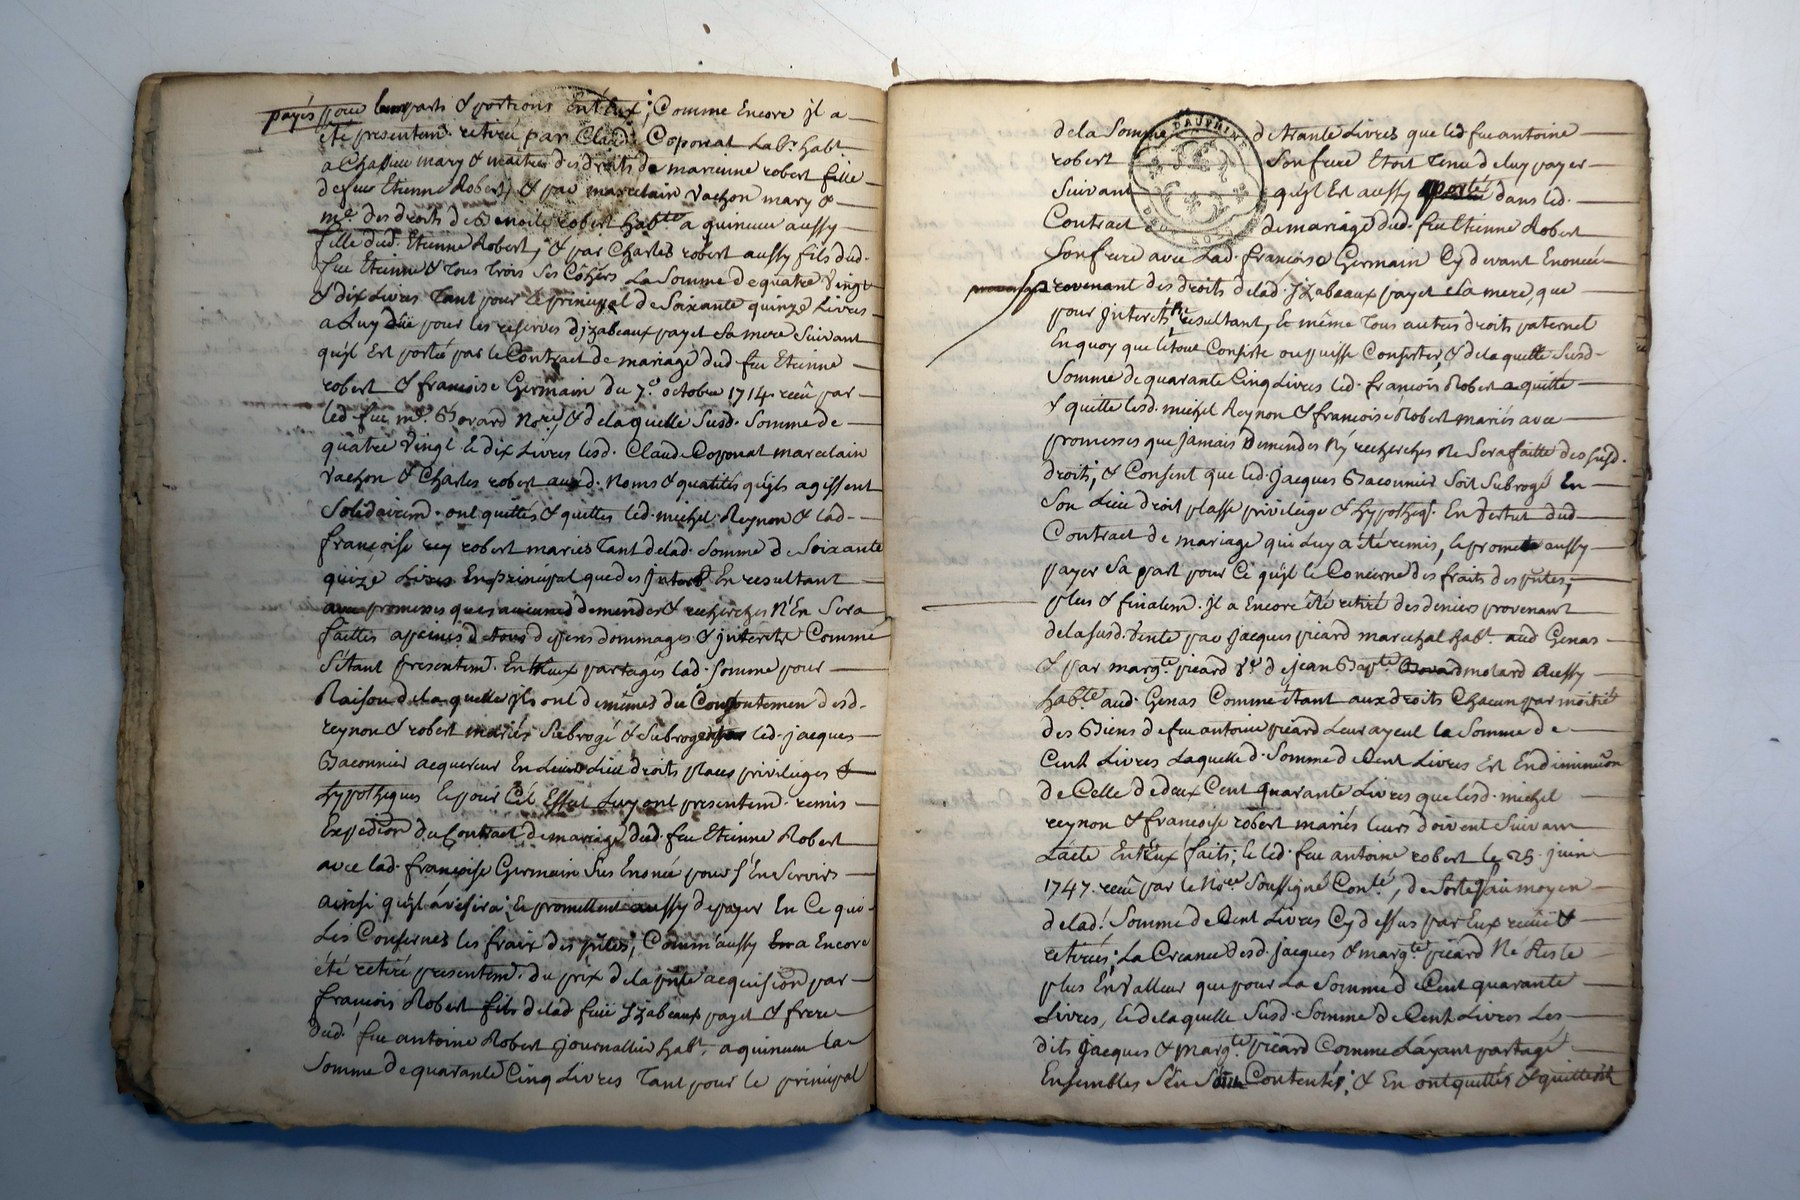 payés pour leurs parts & portions Ent'Eux; Comme Encore jl a
été presentem.t retiré par Claude Coponat Lab.r hab.t
a Chassieu mary & maitre des droits de marienne robert fille
de feu Etienne Robert, & par marcelain Vachon mary &
m.e des droits de Benoite robert hab.te a quinieu aussy
fille dud. Etienne Robert, & par Charles robert aussy fils dud.
feu Etienne & Tous Trois ses Cohers La Somme de quatre Vingt
& dix Livres Tant pour le principal de Soixante quinze Livres
a Luy düe pour les reserves d'jzabeaux payet Sa mere Suivant
qu'jl Est portée par le Contract de mariage dud feu Etienne
robert & francoise Germain du 7.e octobre 1714 recû par
led. feu m.e Bovard No.re, & de laquelle Susd. Somme de
quatre Vingt & dix Livres lesd. Claude Coponat marcelain
Vachon & Charles robert auxd. Noms & qualités qu'jls agissent
Solidairem.t ont quittés & quittes led. michel Reynon & lad.
françoise rey robert maries Tant de lad. Somme de Soixante
quize Livres En principal que des jnterts En resultant
avec promesses que aucunes demendes & recherches N'En Sera
faittes a peines de tous depens dommages & jnterets Comme
S'étant presentem.t Entr'eux partagés lad. Somme pour
Raison de laquelle jls ont de mêmes du Consentemen desd.
reynon & robert mariés Subrogé & Subrogent led. jacques
Baconnier acquereur En Leurs Lieu droits places privileges &
hypotheques & pour Cét Effet Luy ont presentem.t remis
Expedion du Contract de mariage dud. feu Etienne Robert
avec lad. françoise Germain Sus Enoncé pour S'En Servirs
ainsi qu'jl avisira; & promettent aussy de payer En Ce qui
Les Conserne les frais des p.ntes; Comm'aussy Encore
été retiré presentem.t du prix de la p.nte acquision par
francois Robert fils de lad feüe Jzabeaux payet & frere
dud. feu antoine Robert journallier hab.t a quinieu la
Somme de quarante Cinq Livres Tant pour le principal
de la Somme de Trante Livres que led feu antoine
DAUPHINE
robert Son frere Etoit Tenu de luy payer
Suivant qu'jl Est aussy porté dans led.
Contract de mariage dud. feu Etienne Robert
Son frere avec Lad. françoise Germain Cy devant Enoncée
provenant des droits de lad. Jzabeaux payet Sa mere, que
pour jnterets resultant, & même Tous autres droits paternel
En quoy que le tout Consiste ou puisse Consister, & de laquelle Susd.
Somme de quarante Cinq Livres led. francois Robert a quitté
& quitte lesd. michel Reynon & francoise Robert mariés avec
promesses que jamais Demendes Ny recherches Ne Sera faitte des susd.
droits, & Consent que led. Jacques Baconnier Soit Subrogé En
Son Lieu droit plasse privileige & hypotheq. En Vertut dud.
Contract de mariage qui Luy a été remis, & promet aussy
payer Sa part pour Ce qu'jl le Concerne des fraits des p.ntes;
plus & finalem.t jl a Encore été retiré des deniers provenant
de la susd. Vente par Jacques picard marechal hab.t aud Genas
& par marg.te picard V.e de jean Bap.te molard aussy
hab.te aud. Genas Comme étant aux droits Chacun par moitié
des Biens de feu antoine picard Leur ayeul la Somme de
Cent Livres Laquelle d. Somme de Cent Livres Est En diminuôn
de Celle de deux Cent quarante Livres que lesd. michel
reynon & francoise robert mariés leurs doivent Suivant
L'acte Entr'Eux faits; & led. feu antoine robert le 25. juin
1747. recû par le No.re Soussigné Con.lé, de Sorte qu'au moyen
de lad. Somme de Cent Livres Cy dessus par Eux recüe &
retirées; La Creance desd. Jacques & marg.te picard Ne Reste
plus En Valleur que pour La Somme de Cent quarante
Livres, & de laquelle Susd. Somme de Cent Livres Les
dits Jacques & marg.te picard Comme L'ayant partagé
Ensembles S'en Sont Contentés; & En ont quittés & quittent